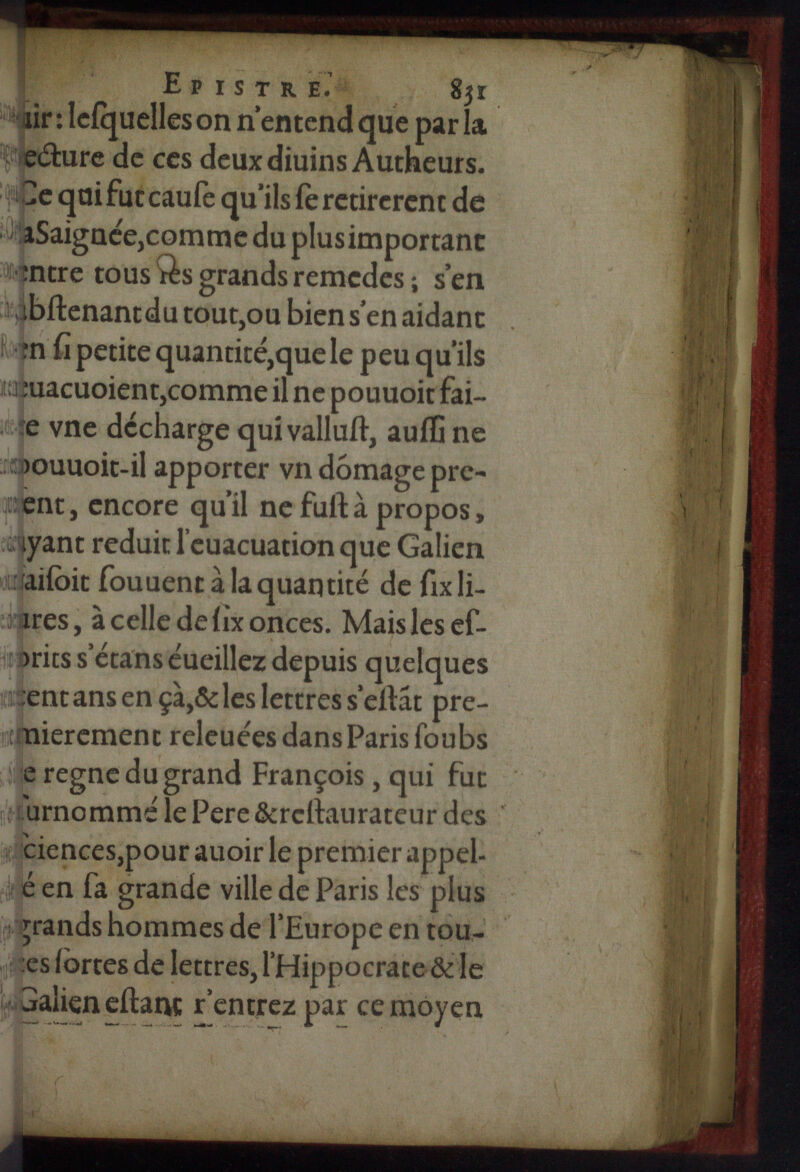 EPISTRE. 831
ir: leſquelles on n'entend que par la
lecture de ces deux diuins Autheurs.
Ce qui fut cauſe qu'ils ſe retirerent de
la Saignée, comme du plus important
entre tous les grands remedes; s'en
abſtenant du tout, ou bien s'en aidant
en ſi petite quantité, que le peu qu'ils
euacuoient, comme il ne pouuoit fai-
re vne décharge qui valluſt, auſſi ne
pouuoit-il apporter vn dómage pre-
ent, encore qu'il ne fuſt à propos,
ayant reduit l'euacuation que Galien
faiſoit ſouuent à la quantité de ſix li-
ures, à celle de ſix onces. Mais les eſ-
prits s'étans éueillez depuis quelques
cent ans en çà, & les lettres s'eſtát pre-
mierement releuées dans Paris ſoubs
le regne du grand François, qui fut
ſurnommé le Pere & reſtaurateur des
ſciences, pour auoir le premier appel-
lé en ſa grande ville de Paris les plus
grands hommes de l'Europe en tou-
tes ſortes de lettres, l'Hippocrate & le
Galien eſtant r'entrez par ce moyen